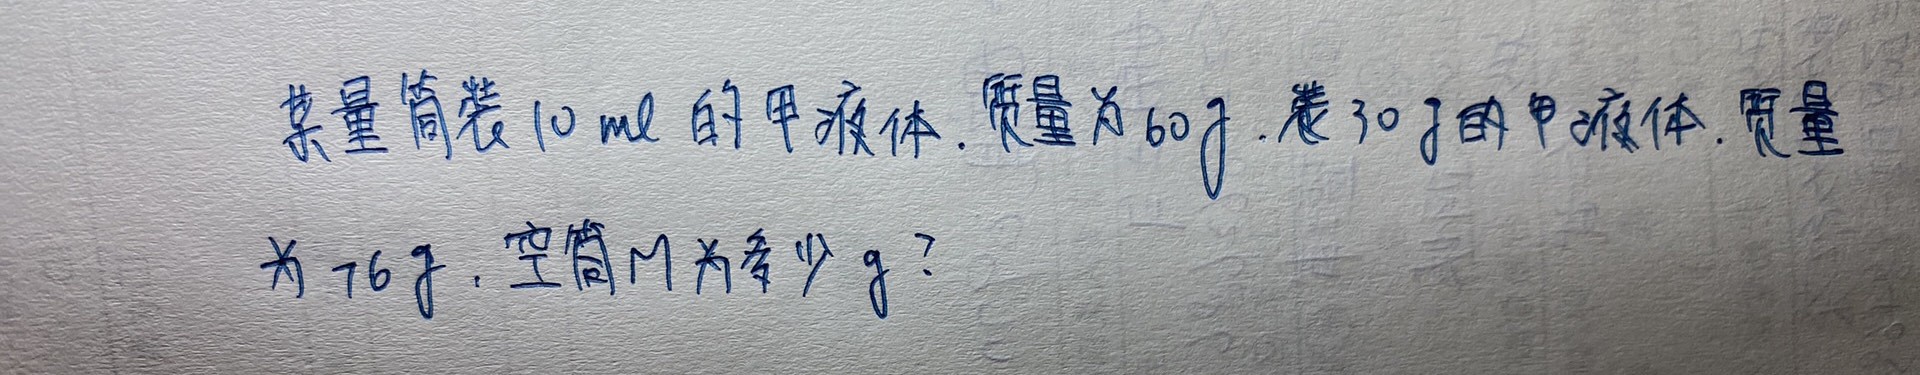 某量筒装10ml的甲液体.质量为60g.装30g的甲液体.质量
为76g.空筒M为多少g?